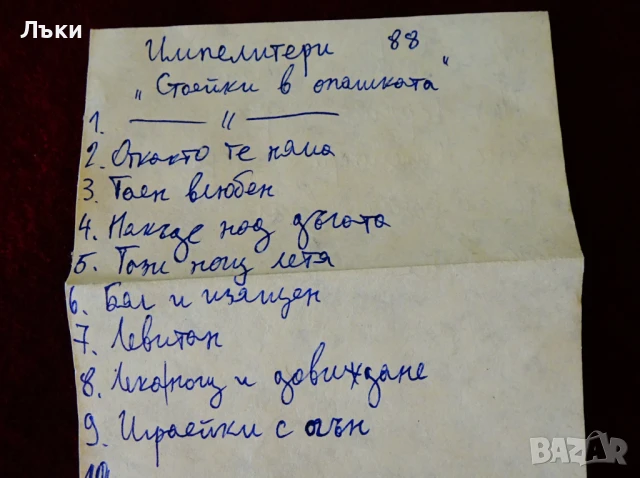 Лъки
Импелитери 88
„Стоейки в опашката"
1. —— 〃 ——
2. Откакто те няма
3. Таен влюбен
4. Накъде над дъгата
5. Тази нощ летя
6. Бял и изящен
7. Левитан
8. Лека нощ и довиждане
9. Играейки с огън
10.
BAZAR